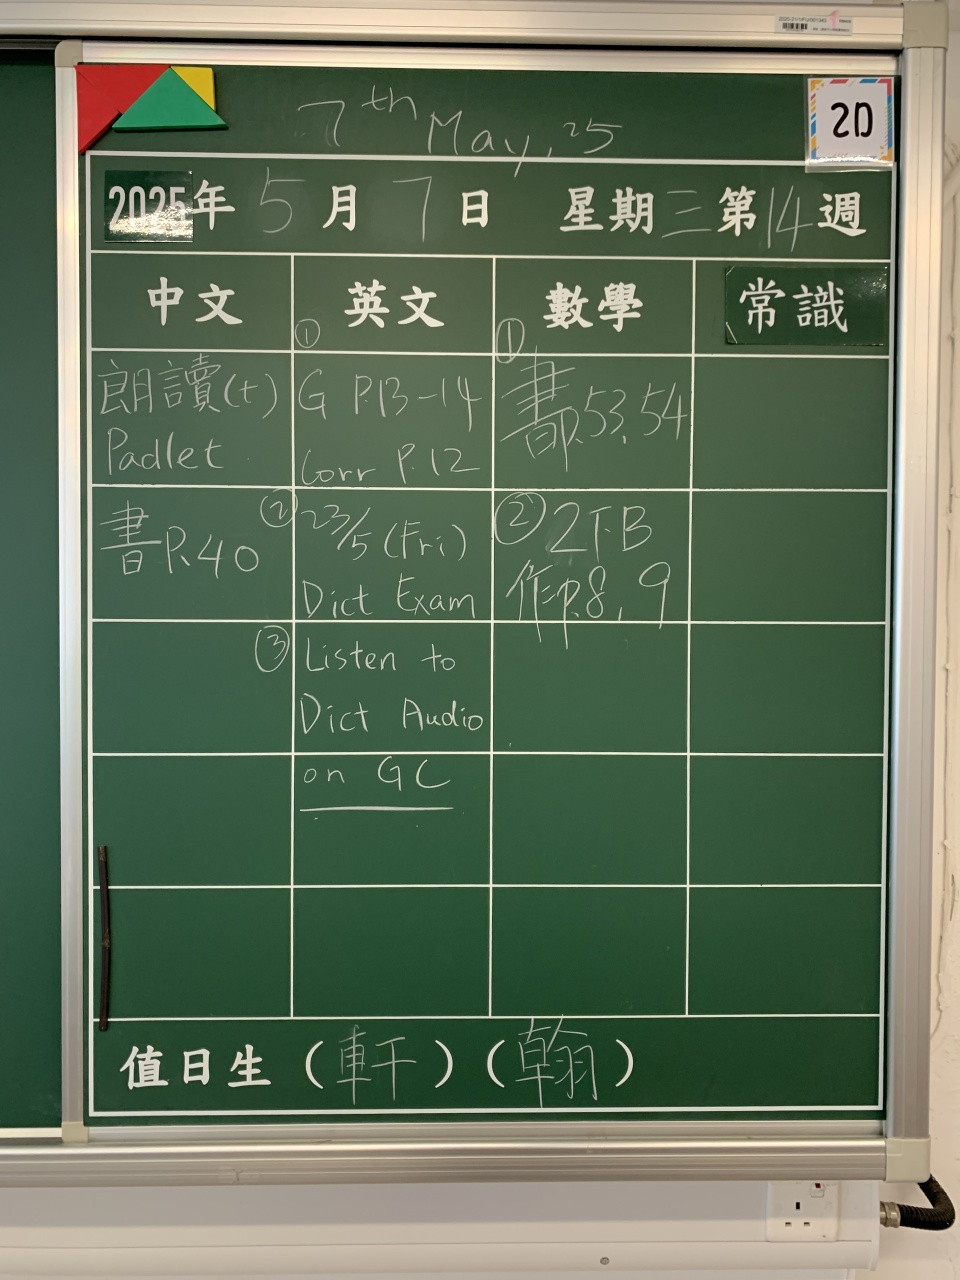 7th May, 25
2D
2025年 5 月 7 日 星期三第14週
中文 英文 數學 常識
朗讀(t)
Padlet
書P.40
① G P.13-14
Corr P.12
② 23/5 (Fri)
Dict Exam
③ Listen to
Dict Audio
on GC
① 書P.53, 54
② 2下B
作P.8, 9
值日生 (軒) (翰)